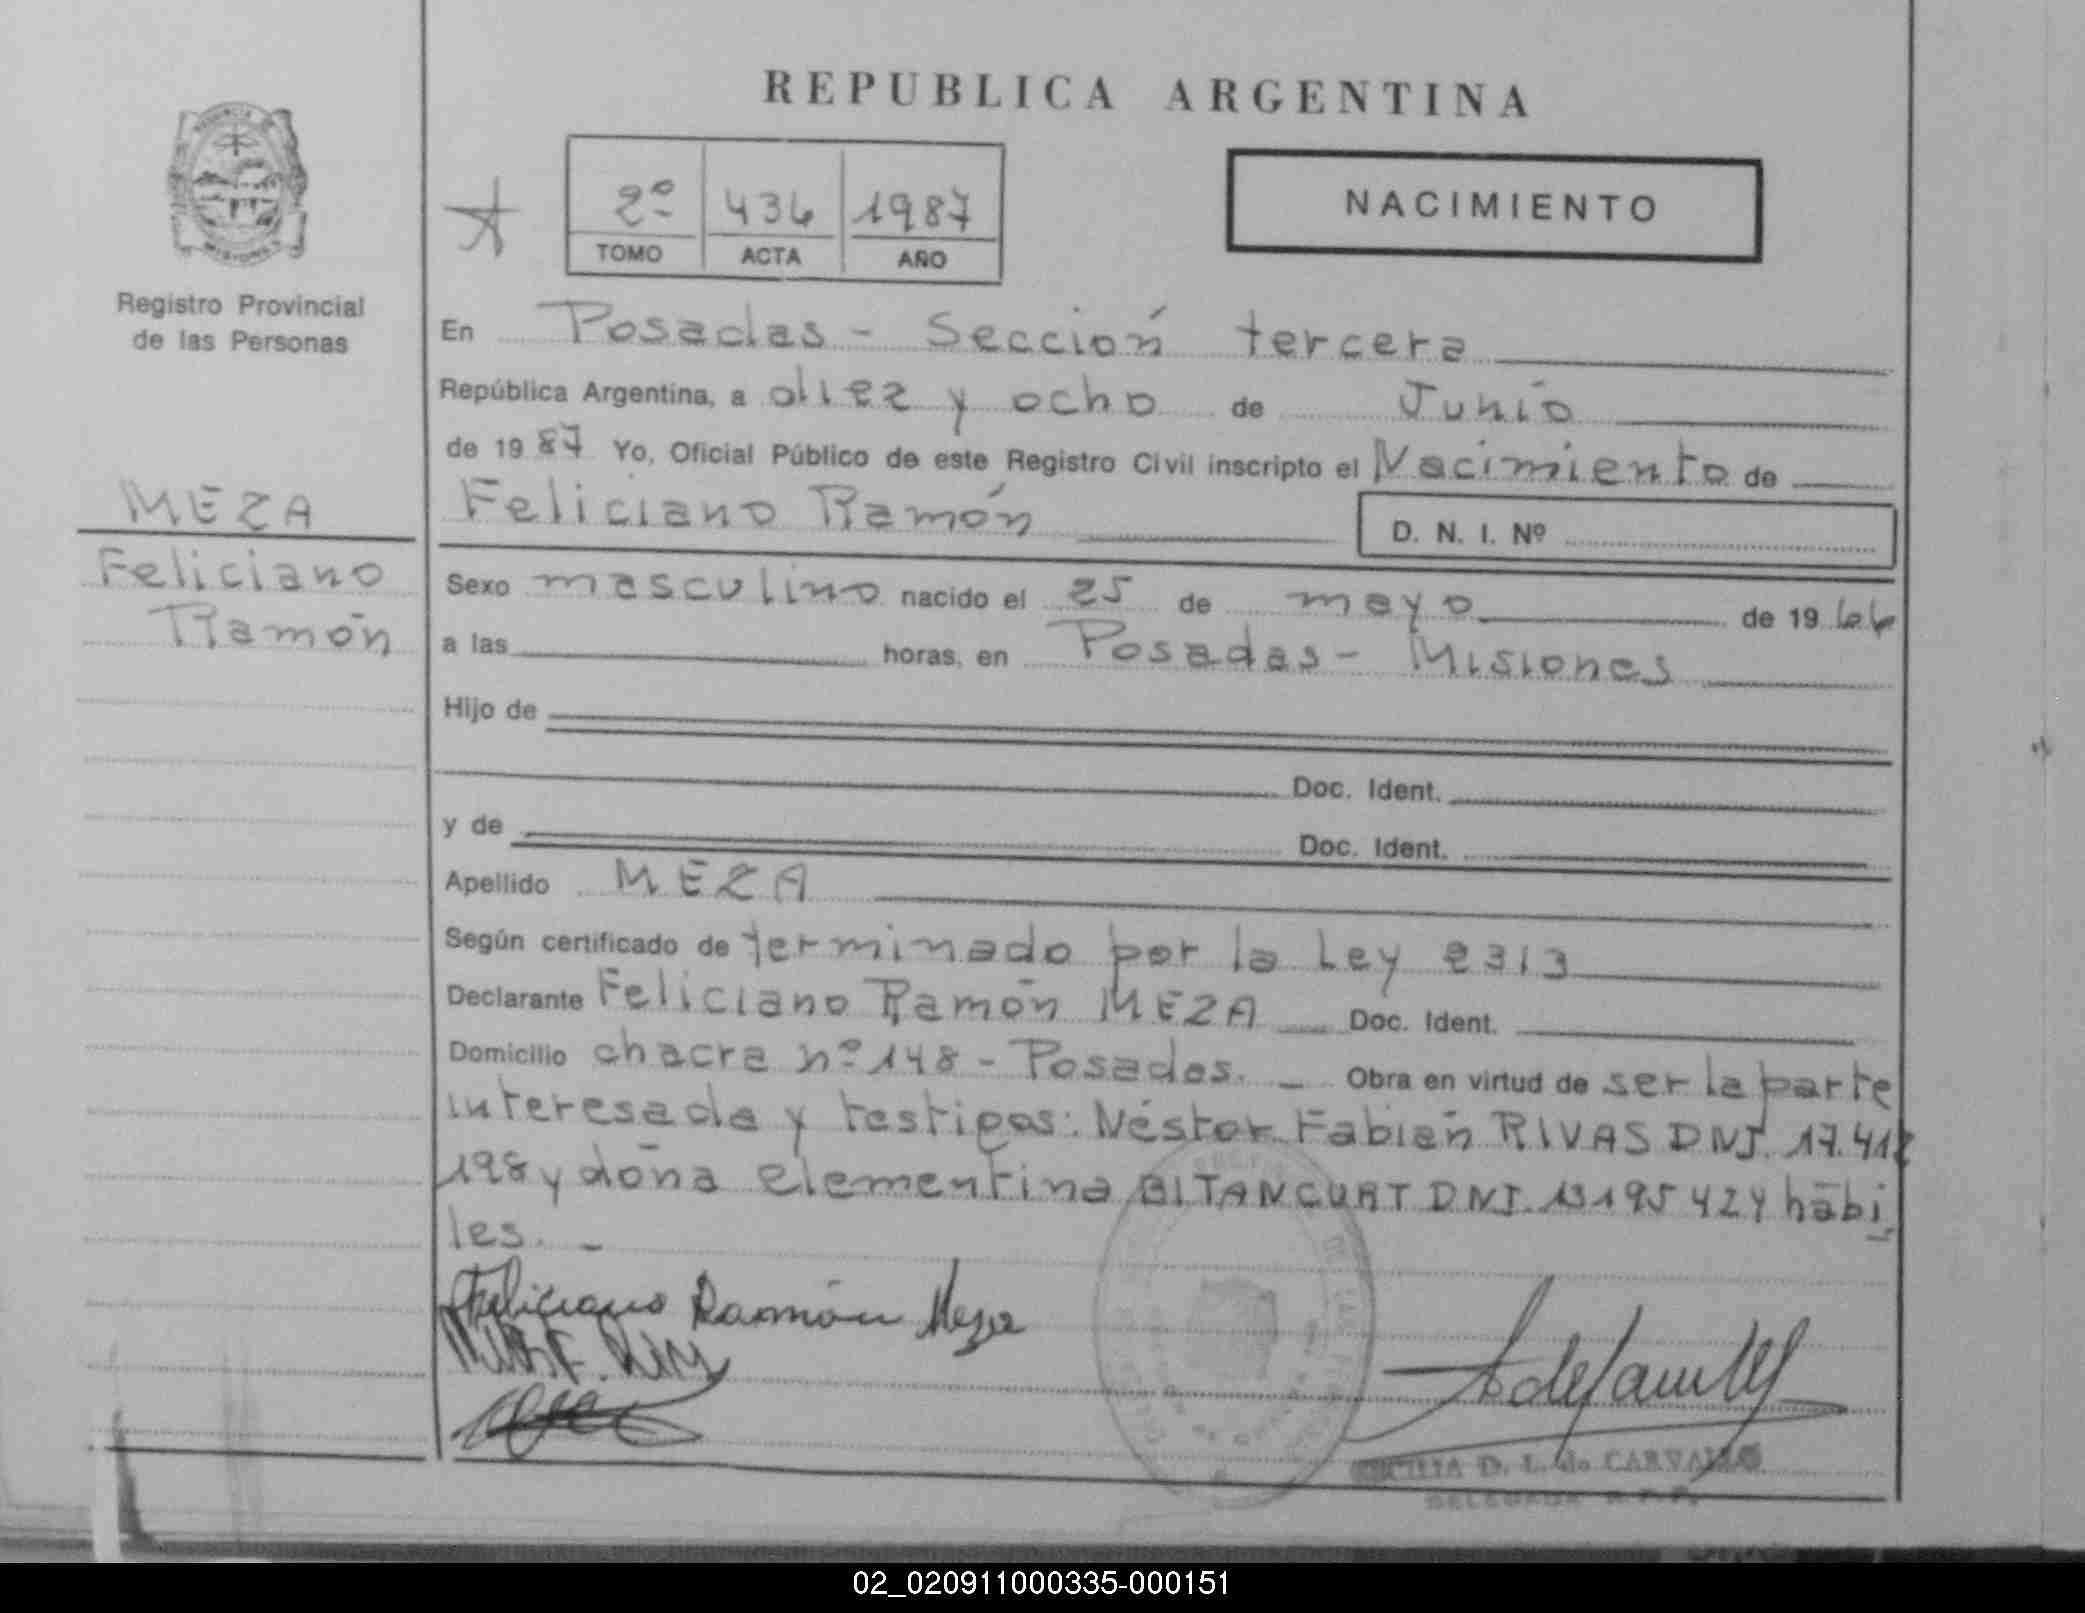 REPUBLICA ARGENTINA
2º 436 1987
TOMO ACTA AÑO
NACIMIENTO
Registro Provincial
de las Personas
En Posadas - Sección tercera
República Argentina, a diez y ocho de Junio
de 1987 Yo, Oficial Público de este Registro Civil inscripto el Nacimiento de
MEZA
Feliciano Ramón
D. N. I. Nº
Feliciano
Ramón
Sexo masculino nacido el 25 de mayo de 1966
a las horas, en Posadas - Misiones
Hijo de
Doc. Ident.
y de Doc. Ident.
Apellido MEZA
Según certificado de terminado por la Ley 2313
Declarante Feliciano Ramón MEZA Doc. Ident.
Domicilio chacra nº 148 - Posadas. _ Obra en virtud de ser la parte
interesada y testigos: Néstor Fabián RIVAS DNI. 17.412
198 y doña Clementina BITANCURT DNI. 13195424 hábi
les. _
Feliciano Ramón Meza
D. L. de CARVALLO
DELEGADA R.P.P.
02_020911000335-000151